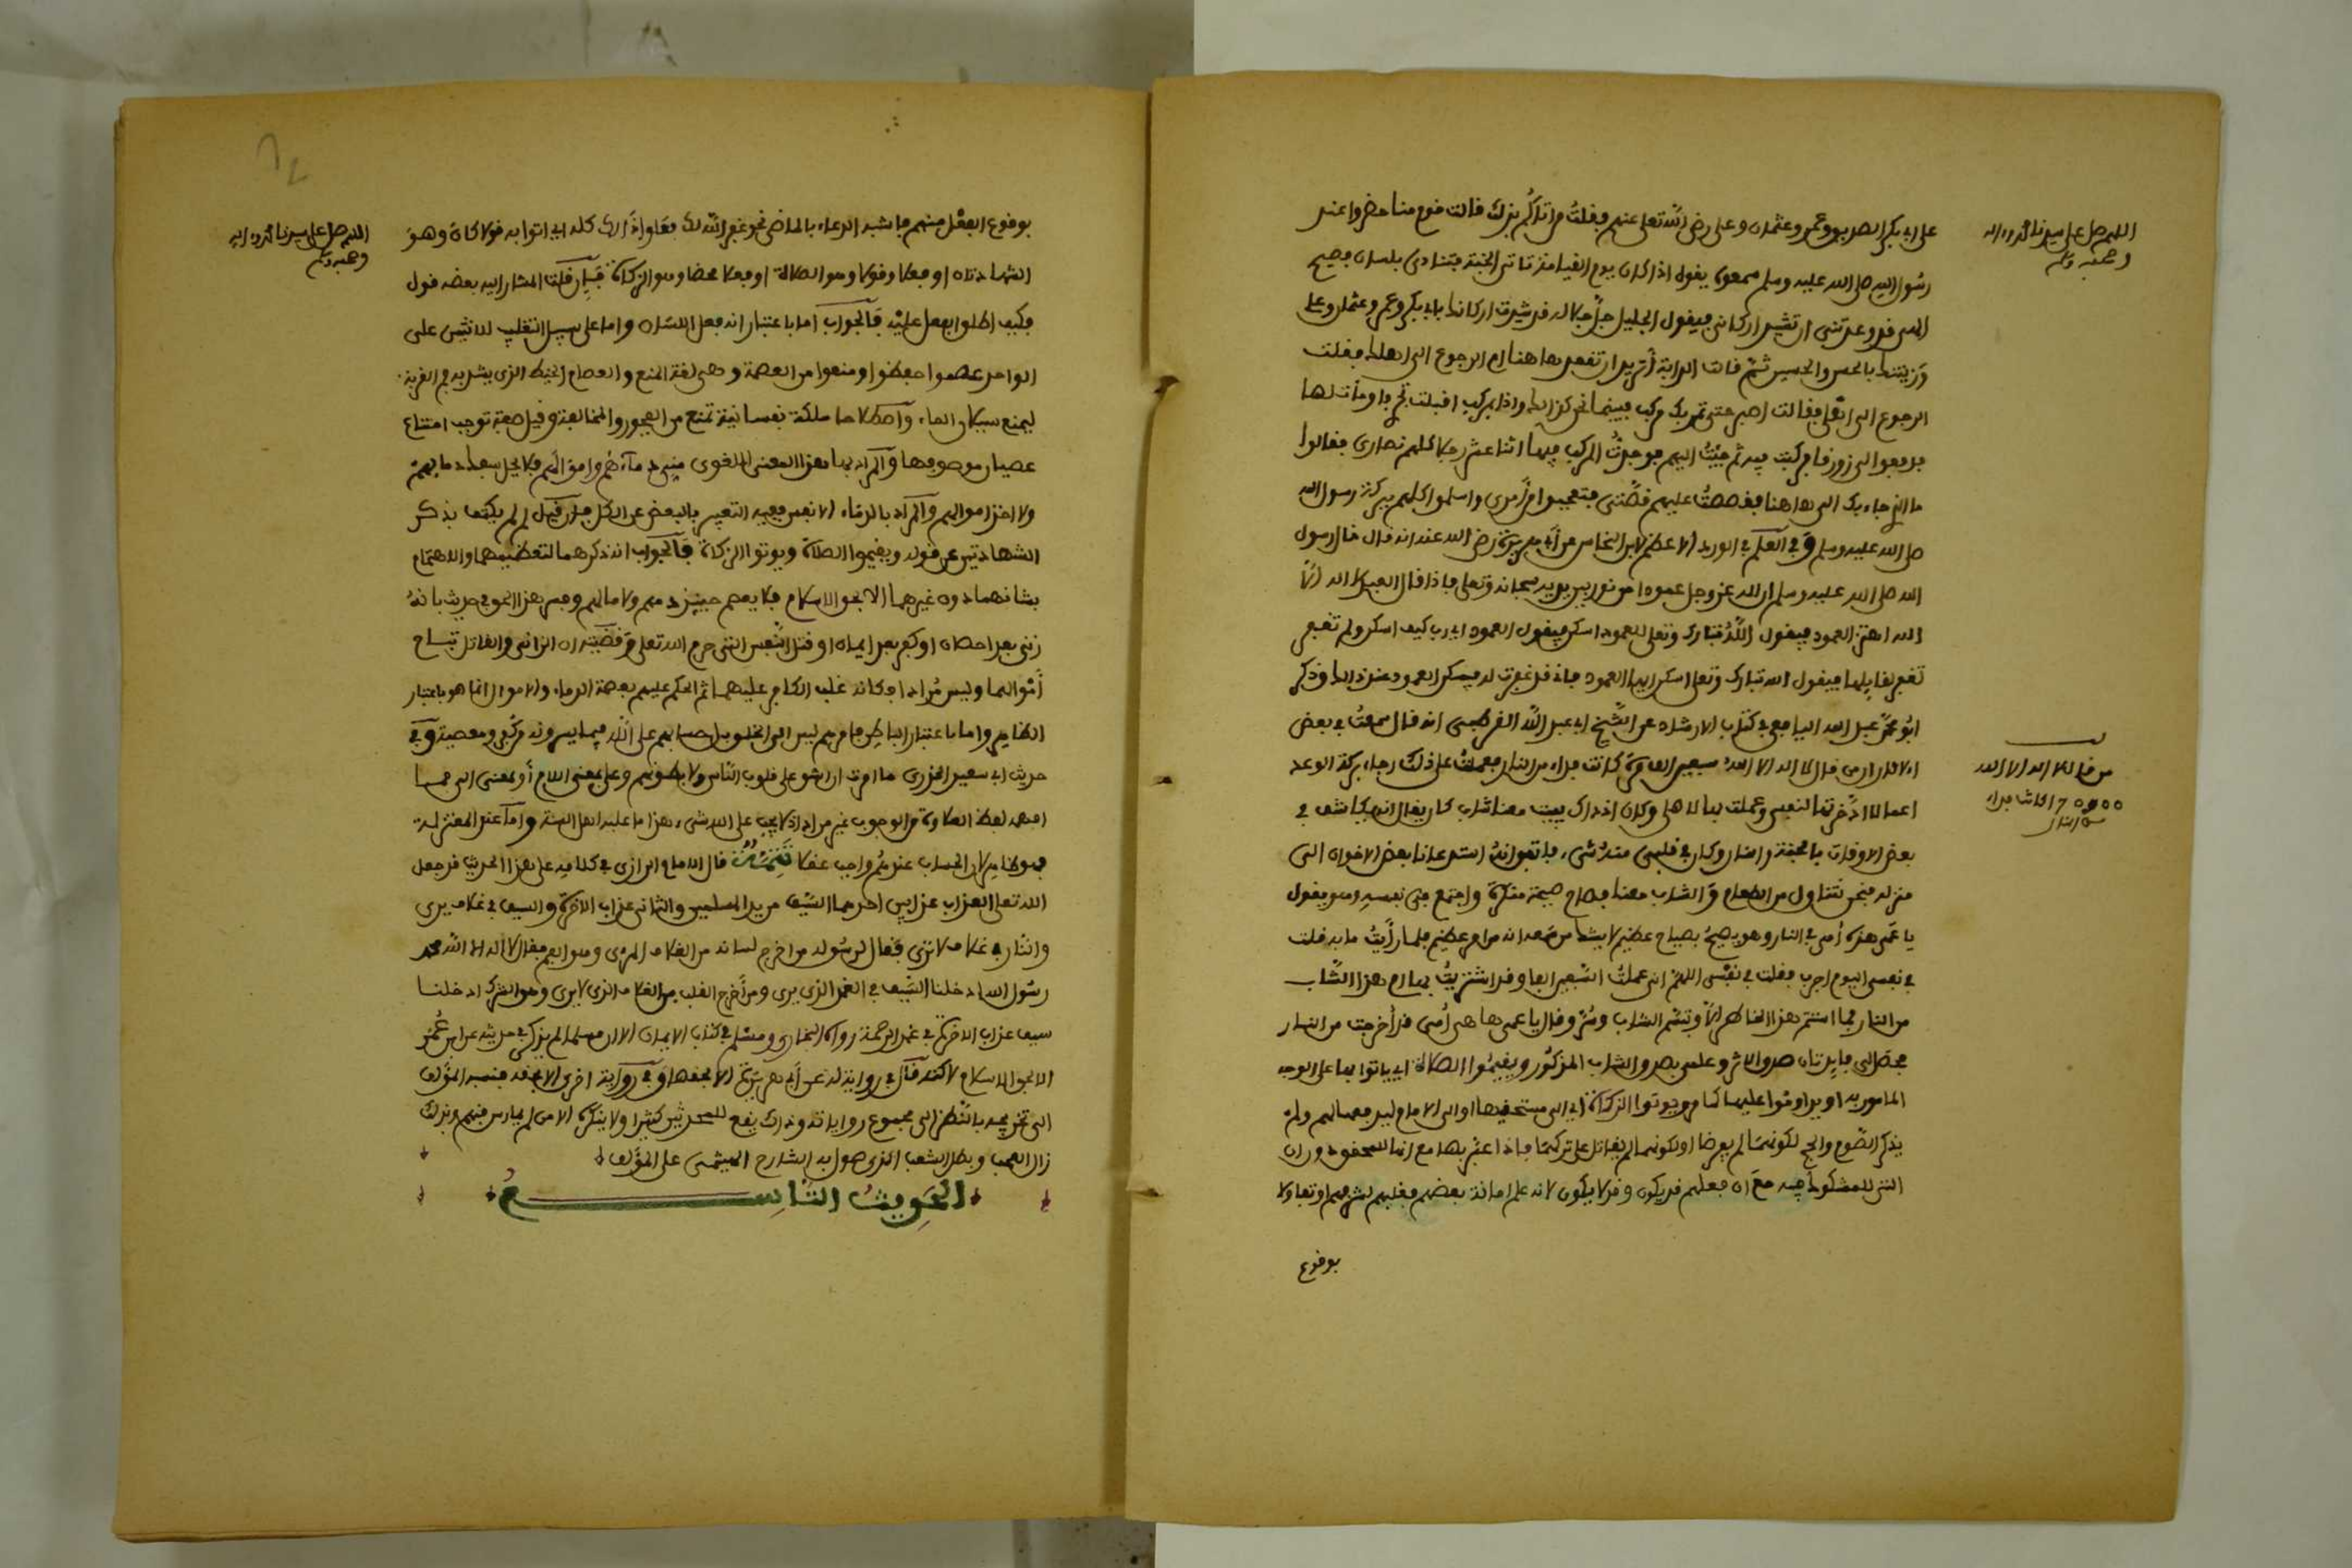 اللهم صل على سيدنا محمد وءاله
وصحبه وسلم
على ابي بكر الصديق وعمر وعثمان وعلي رضي الله تعلى عنهم فقلت من اتاكم بذلك قالت قوم منا حضروا عند
رسول الله صلى الله عليه وسلم سمعوه يقول اذا كان يوم القيامة تاتي الجنة فتنادي بلسان فصيح
الهي قد وعدتني ان تشيد اركاني فيقول الجليل جل جلاله قد شيدت اركانك بابي بكر وعمر وعثمان وعلي
وزينتك بالحسن والحسين ثم قالت الدابة أتريد ان تقعد هاهنا ام الرجوع الى اهلك فقلت
الرجوع الى اهلي فقالت اصبر حتى تمر بك مركب فبينما نحن كذلك واذا بمركب اقبلت تجري فاومأت لها
فدفعوا الي زورقا فركبت فيه ثم جئت اليهم فوجدت المركب فيها اثنا عشر رجلا كلهم نصارى فقالوا
ما الذي جاء بك الى هاهنا فقصصت عليهم قصتي فتعجبوا من أمري واسلموا كلهم ببركة رسول الله
صلى الله عليه وسلم وفي العلم في الورد الاعظم لابن النحاس عن أبي هريرة رضي الله عنه انه قال قال رسول
الله صلى الله عليه وسلم ان لله عز وجل عمودا من نور بين يديه سبحانه وتعلى فاذا قال العبد لا اله الا
الله اهتز العمود فيقول الله تبارك وتعلى للعمود اسكن فيقول العمود اي رب كيف اسكن ولم تغفر
تغفر لقايلها فيقول الله تبارك وتعلى اسكن ايها العمود فاني قد غفرت له فيسكن العمود عند ذلك وذكر
ابو محمد عبد الله اليافعي في كتاب الارشاد عن الشيخ ابي عبد الله القرطبي انه قال سمعت في بعض
الاثار ان من قال لا اله الا الله سبعين الف مرة كانت فداءه من النار فعملت على ذلك رجاء بركة الوعد
من قال لا اله الا الله
70000 كانت فداءه
من النار
اعمالا ادخرتها لنفسي وعملت بها لاهلي وكان اذ ذاك يبيت معنا شاب كان يقال انه يكاشف في
بعض الاوقات بالجنة والنار وكان في قلبي منه شيء فاتفق انه استدعانا بعض الاخوان الى
منزله فنحن نتناول من الطعام والشاب معنا فصاح صيحة منكرة واجتمع في نفسه وهو يقول
يا عمي هذه أمي في النار وهو يصيح بصياح عظيم لا يشك من سمعه انه من امر عظيم فلما رأيت ما به قلت
في نفسي اليوم اجرب فقلت في نفسي اللهم اني عملت السبعين الفا وقد اشتريت بها ام هذا الشاب
من النار فما استتم هذا الخاطر الا وتبسم الشاب وسر وقال يا عمي ها هي أمي قد أخرجت من النار
فحصل لي فايدتان صدق الاثر وعلمي بصدق الشاب المذكور ويقيموا الصلاة اي ياتوا بها على الوجه
المامور به او يداوموا عليها كما مر ويوتوا الزكاة اي الى مستحقيها او الى الامام ليدفعها لهم ولم
يذكر الصوم والحج لكونهما لم يفرضا او لكونهما لم يقاتل على تركهما
بوقوع
اللهم صل على سيدنا محمد وءاله
وصحبه وسلم
بوقوع الفعل منهم فاشبه الدعاء بالماضي نحو غفر الله لك فعلوا ذلك كله اي اتوا به قولا كان وهو
الشهادتان او فعلا وقولا وهو الصلاة او فعلا محضا وهو الزكاة فإن قلت المشار اليه بعضه قول
فكيف اطلق الفعل عليه فالجواب اما باعتبار انه فعل اللسان واما على سبيل التغليب للاثنين على
الواحد عصموا حفظوا ومنعوا من العصمة وهي لغة المنع والعصام الخيط الذي يشد به فم القربة
ليمنع سيلان الماء واصطلاحا ملكة نفسانية تمنع من الفجور والمخالفة وقيل صفة توجب امتناع
عصيان موصوفها والمراد بها هنا المعنى اللغوي مني دماءهم واموالهم فلا يحل سفك دمايهم
ولا اخذ اموالهم والمراد بالدماء الانفس ففيه التعبير بالبعض عن الكل فان قيل لم لم يكتف بذكر
الشهادتين عن قوله ويقيموا الصلاة ويوتوا الزكاة فالجواب انه ذكرهما لتعظيمهما والاهتمام
بشانهما دون غيرهما الا بحق الاسلام فلا يعصم حينئذ دمهم ولا مالهم وفسر هذا الحق في حديث بانه
زنى بعد احصان او كفر بعد ايمان او قتل النفس التي حرم الله تعلى وقضيته ان الزاني والقاتل تباح
أموالهما وليس مرادا فكانه غلب الكافر عليهما ثم الحكم عليهم بعصمة الدماء والاموال انما هو باعتبار
الظاهر واما باعتبار الباطن فامرهم ليس الى الخلق بل حسابهم على الله فيما يسرونه من كفر ومعصية وفي
حديث ابي سعيد الخدري ما امرت ان اشق على قلوب الناس ولا بطونهم وعلى بمعنى اللام أو بمعنى الى فما
افهمه لفظ العلاوة من الوجوب غير مراد اذ لا يجب على الله شيء هذا ما عليه اهل السنة واما عند المعتزلة
فهو ظاهر لان الحساب عندهم واجب عقلا تتمة قال الامام الرازي في كلامه على هذا الحديث قد جعل
الله تعلى العذاب عذابين احدهما السيف من يد المسلمين والثاني عذاب الاخرة والسيف في غلاف يرى
والنار في غلاف لا ترى فقال لرسوله من اخرج لسانه من الغلاف المرئي وهو الفم فقال لا اله الا الله محمد
رسول الله ادخلنا السيف في الغمد الذي يرى ومن أخرج القلب من الغلاف الذي لا يرى وهو الشرك ادخلنا
سيف عذاب الاخرة في غمد الرحمة رواه البخاري ومسلم في كتاب الايمان الا ان مسلما لم يذكر في حديثه عن ابن عمر
الا بحق الاسلام لاكنه قال في رواية له عن أبي هريرة الا بحقها وفي رواية اخرى الا بحقه فنسبه المؤلف
الى تخريجه بالنظر الى مجموع رواياته وذلك يقع للمحدثين كثيرا ولا ينكره الا من لم يمارس فنهم وبذلك
زال العجب وبطل الشغب الذي هول به الشارح الهيثمي على المؤلف
الحديث التاسع